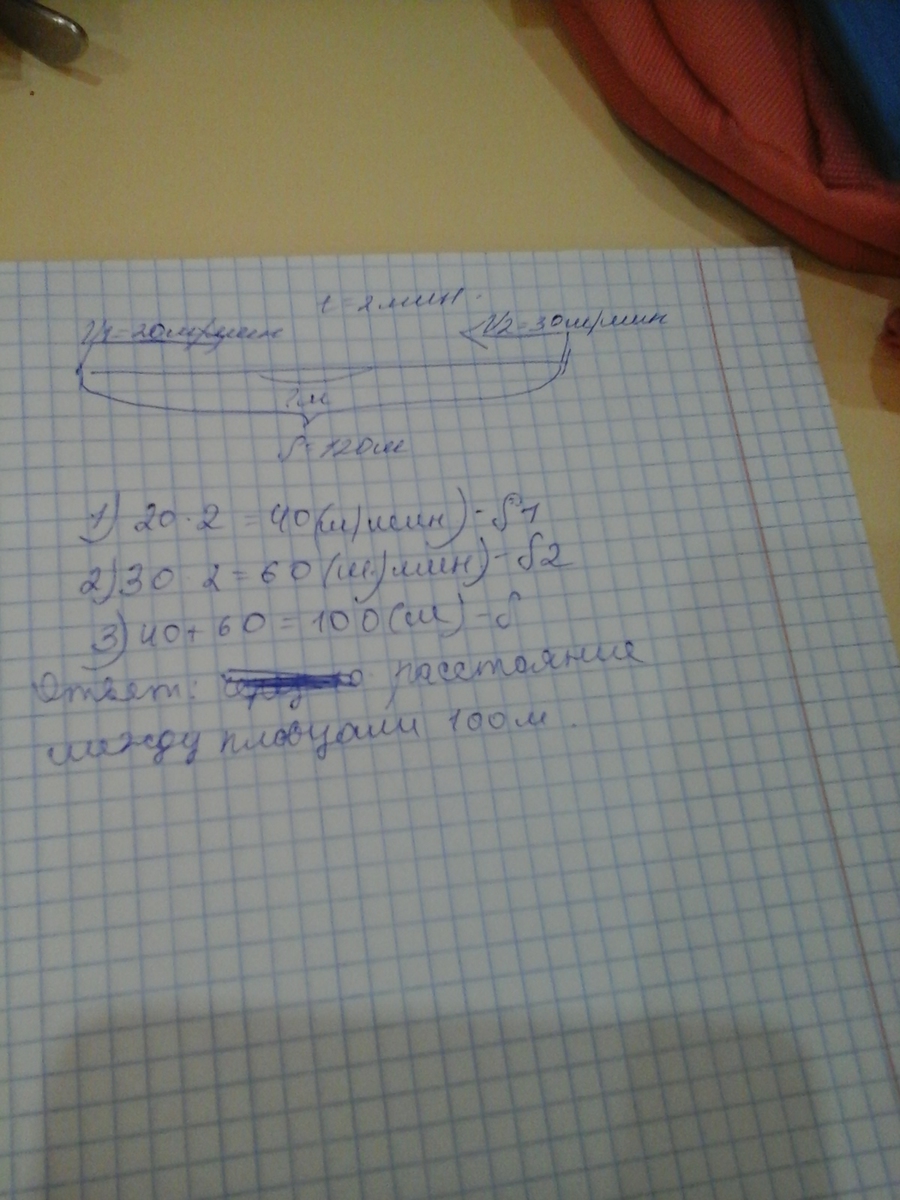 t = 2 мин.
V1=20м/мин V2=30м/мин
?м
S=120м
1) 20 · 2 = 40(м/мин) - S1
2) 30 · 2 = 60 (м/мин) - S2
3) 40 + 60 = 100 (м) - S
Ответ: расстояние
между пловцами 100м.